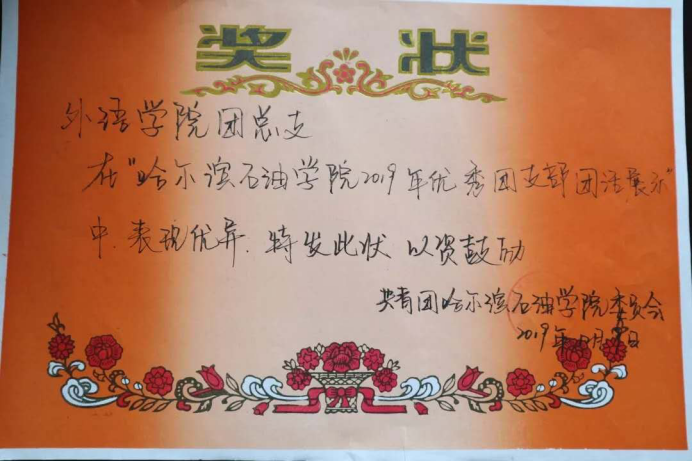 奖状
外语学院团总支
在"哈尔滨石油学院2019年优秀团支部团活展示"
中,表现优异,特发此状 以资鼓励
共青团哈尔滨石油学院委员会
2019年 月 日